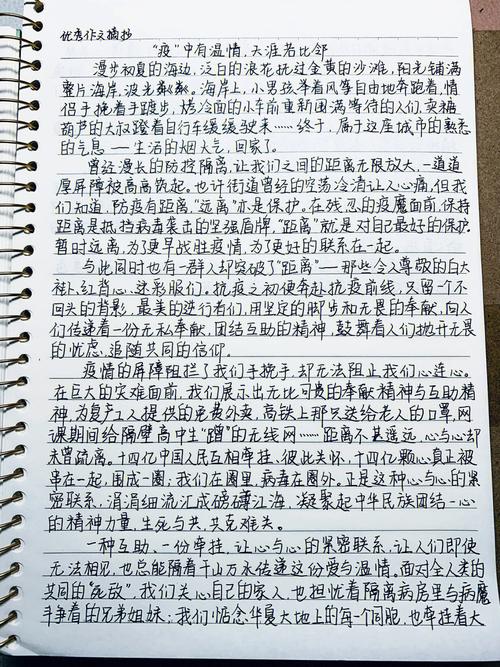 优秀作文摘抄
“疫”中有温情,天涯若比邻
漫步初夏的海边,泛白的浪花抚过金黄的沙滩,阳光铺满
整片海岸,波光粼粼。海岸上,小男孩举着风筝自由地奔跑着,情
侣手挽着手踱步,烤冷面的小车前重新围满等待的人们,卖糖
葫芦的大叔蹬着自行车缓缓驶来……终于,属于这座城市的熟悉
的气息——生活的烟火气,回家了。
曾经漫长的防控隔离,让我们之间的距离无限放大,一道道
厚屏障被高高筑起。也许街道曾经的空荡冷清让人心痛,但我
们知道,防疫有距离,“远离”亦是保护。在残忍的疫魔面前,保持
距离是抵挡病毒袭击的坚强盾牌,“距离”就是对自己最好的保护
暂时远离,为了更早战胜疫情,为了更好的联系在一起。
与此同时也有一群人却突破了“距离”——那些令人尊敬的白大
褂、红背心、迷彩服们。抗疫之初便奔赴抗疫前线,只留一个不
回头的背影,最美的逆行者们,用坚定的脚步和无畏的奉献,向人
们传递着一份无私奉献,团结互助的精神,鼓舞着人们抛开无畏
的忧虑,追随共同的信仰。
疫情的屏障阻拦了我们手挽手,却无法阻止我们心连心。
在巨大的灾难面前,我们展示出无比可贵的奉献精神与互助精
神,为复产工人提供的免费外卖,高铁上那只送给老人的口罩,网
课期间给隔壁高中生“蹭”的无线网……距离不甚遥远,心与心却
未曾疏离。十四亿中国人民互相牵挂、彼此关怀,十四亿颗心真正被
串在一起,围成一圈;我们在圈里,病毒在圈外。正是这种心与心的紧
密联系,涓涓细流汇成磅礴江海,凝聚起中华民族团结一心
的精神力量,生死与共,共克难关。
一种互助、一份牵挂,让心与心的紧密联系,让人们即使
无法相见,也总能隔着千山万水传递这份爱与温情。面对全人类的
共同的“死敌”,我们关心自己的家人,也担忧着隔离病房里与病魔
斗争着的兄弟姐妹;我们惦念华夏大地上的每一个同胞,也牵挂着大